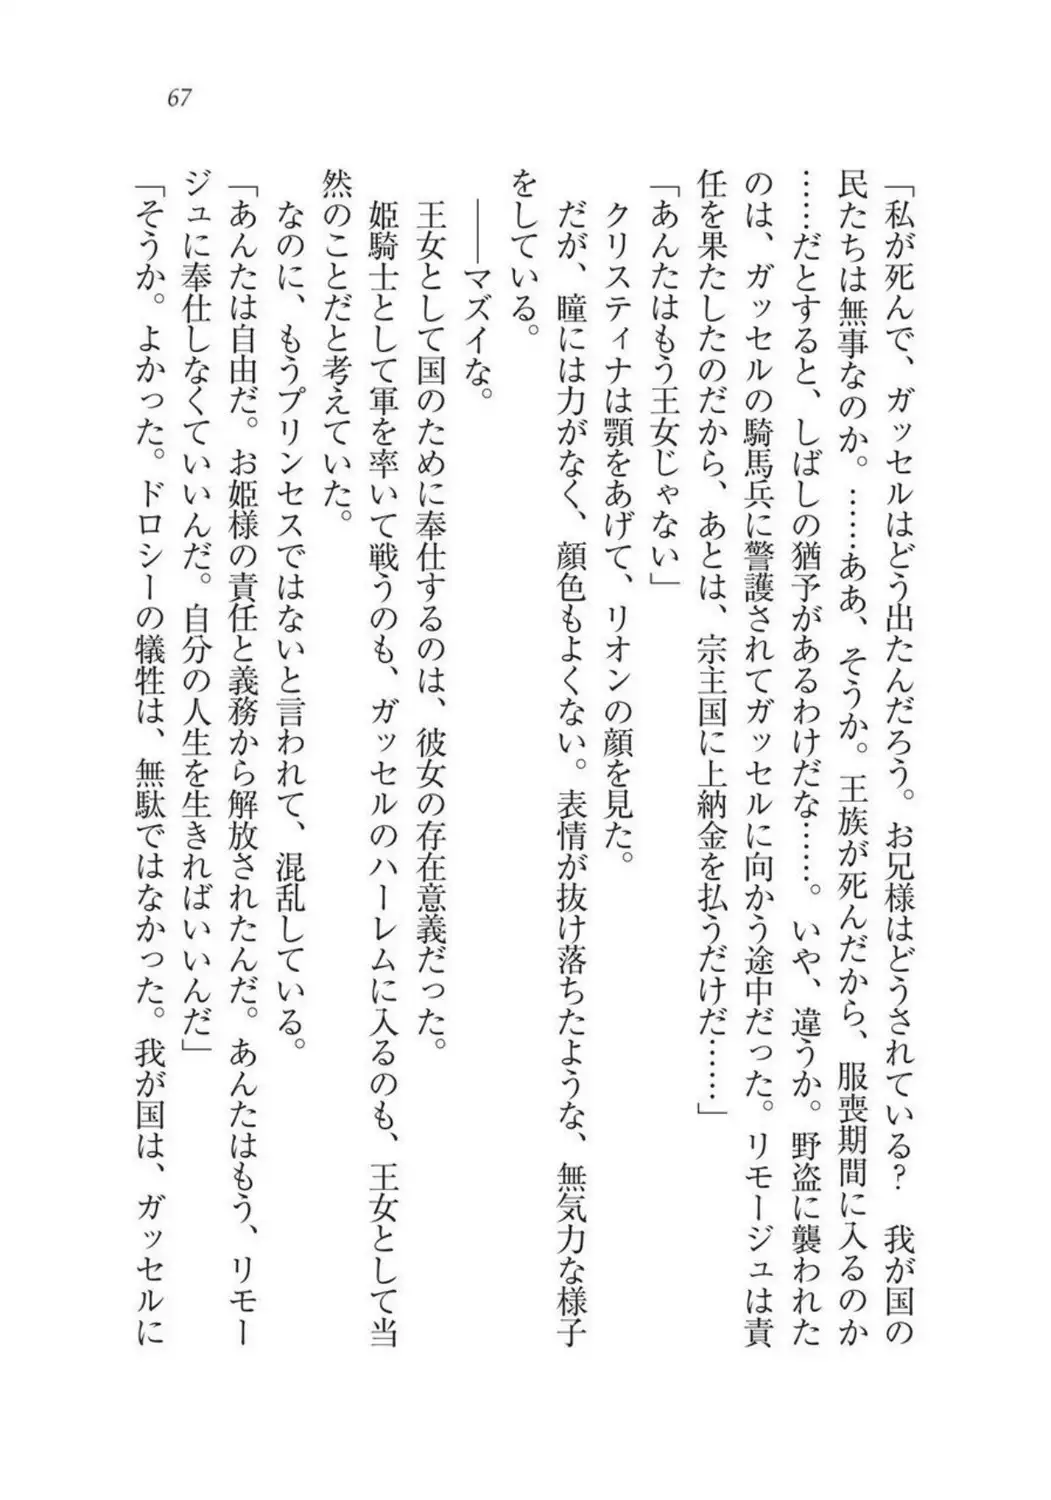 67
「私が死んで、ガッセルはどう出たんだろう。お兄様はどうされている？　我が国の
民たちは無事なのか。……ああ、そうか。王族が死んだから、服喪期間に入るのか
……だとすると、しばしの猶予があるわけだな……。いや、違うか。野盗に襲われた
のは、ガッセルの騎馬兵に警護されてガッセルに向かう途中だった。リモージュは責
任を果たしたのだから、あとは、宗主国に上納金を払うだけだ……」
「あんたはもう王女じゃない」
　クリスティナは顎をあげて、リオンの顔を見た。
　だが、瞳には力がなく、顔色もよくない。表情が抜け落ちたような、無気力な様子
をしている。
　――マズイな。
　王女として国のために奉仕するのは、彼女の存在意義だった。
　姫騎士として軍を率いて戦うのも、ガッセルのハーレムに入るのも、王女として当
然のことだと考えていた。
　なのに、もうプリンセスではないと言われて、混乱している。
「あんたは自由だ。お姫様の責任と義務から解放されたんだ。あんたはもう、リモー
ジュに奉仕しなくていいんだ。自分の人生を生きればいいんだ」
「そうか。よかった。ドロシーの犠牲は、無駄ではなかった。我が国は、ガッセルに